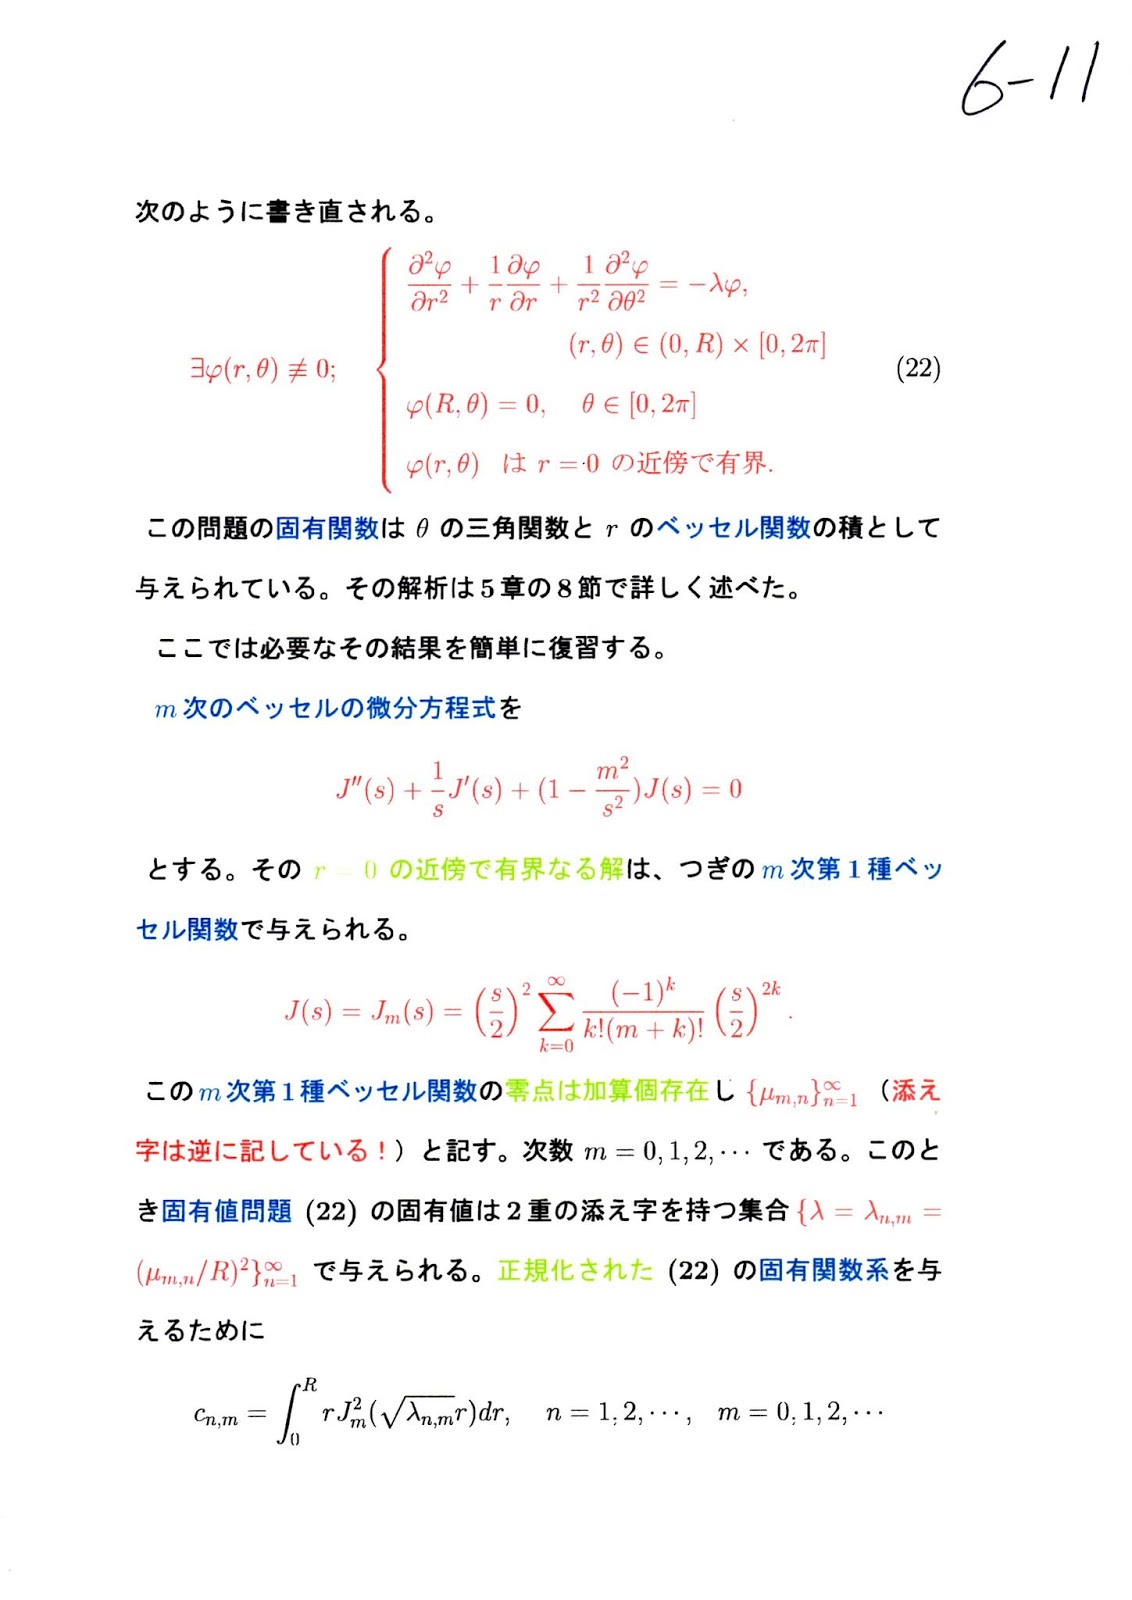 6-11
次のように書き直される。
∂²φ/∂r² + 1/r ∂φ/∂r + 1/r² ∂²φ/∂θ² = −λφ,
(r, θ) ∈ (0, R) × [0, 2π]
∃φ(r, θ) ≢ 0; (22)
φ(R, θ) = 0, θ ∈ [0, 2π]
φ(r, θ) は r = 0 の近傍で有界.
この問題の固有関数は θ の三角関数と r のベッセル関数の積として
与えられている。その解析は5章の8節で詳しく述べた。
ここでは必要なその結果を簡単に復習する。
m 次のベッセルの微分方程式を
J''(s) + 1/s J'(s) + (1 − m²/s²)J(s) = 0
とする。その r = 0 の近傍で有界なる解は、つぎの m 次第1種ベッ
セル関数で与えられる。
J(s) = J_m(s) = (s/2)² ∑_{k=0}^{∞} (−1)^k / k!(m + k)! (s/2)^{2k}.
この m 次第1種ベッセル関数の零点は加算個存在し {μ_{m,n}}_{n=1}^{∞} （添え
字は逆に記している！）と記す。次数 m = 0, 1, 2, ⋯ である。このと
き固有値問題 (22) の固有値は2重の添え字を持つ集合 {λ = λ_{n,m} =
(μ_{m,n}/R)²}_{n=1}^{∞} で与えられる。正規化された (22) の固有関数系を与
えるために
c_{n,m} = ∫_0^R rJ_m²(√λ_{n,m} r)dr, n = 1, 2, ⋯, m = 0, 1, 2, ⋯